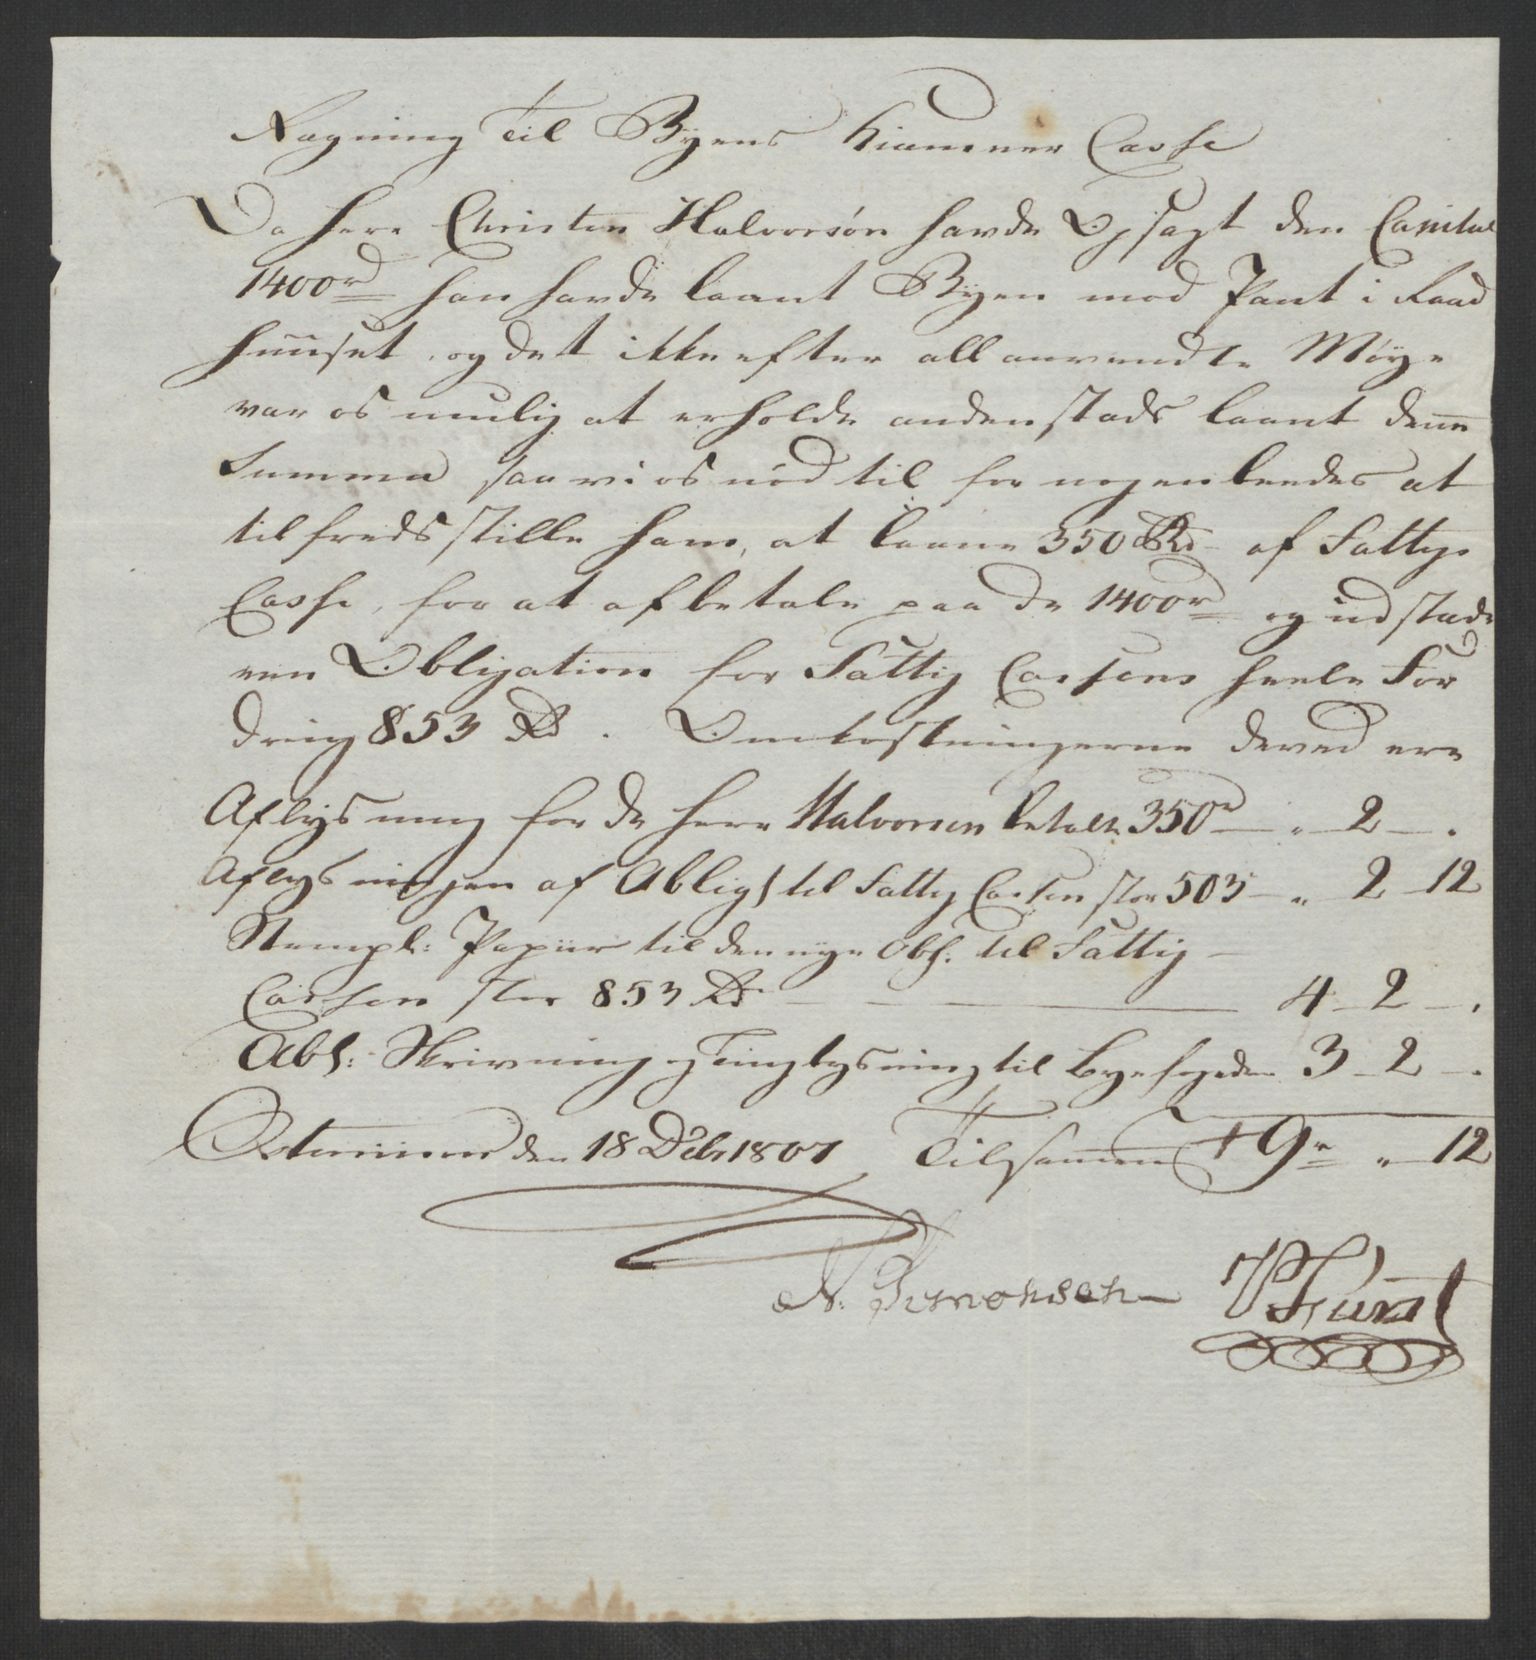 Regning Til Byens Kiæmner Casse
Da Herr Christen Halvorsøn havde Opsagt den Capital
1400rd han havde laant Byen mod Pant i Raad
huuset, og det ikke efter all anvendte Møye
var os mulig at erholde andenstads laant denne
Summa saa vi os nød til for nogenleedes at
tilfredsstille ham, at laane 350 Rd af Fattig
Casse, for at afbetale paa de 1400rd og udstæde
een Obligation for Fattig Cassens heele For
dring 853 Rd. Omkostningerne derved ere
Aflysning for de Herr Halvorsen betalte 350rd — " — 2 — .
Aflysningen af Oblig: til Fattig Cassen stor 503 — " — 2 — 12
Stempl: Papiir til den nye Obl: til Fattig —
Cassen stor 853 Rd — 4 — 2 — .
Obl: Skrivning og Tinglysning til Byefogden 3 — 2 — .
Østeriisøer den 18 Debr 1807 Tilsamen 9rd " — 12
N. Simonsen — Fürst